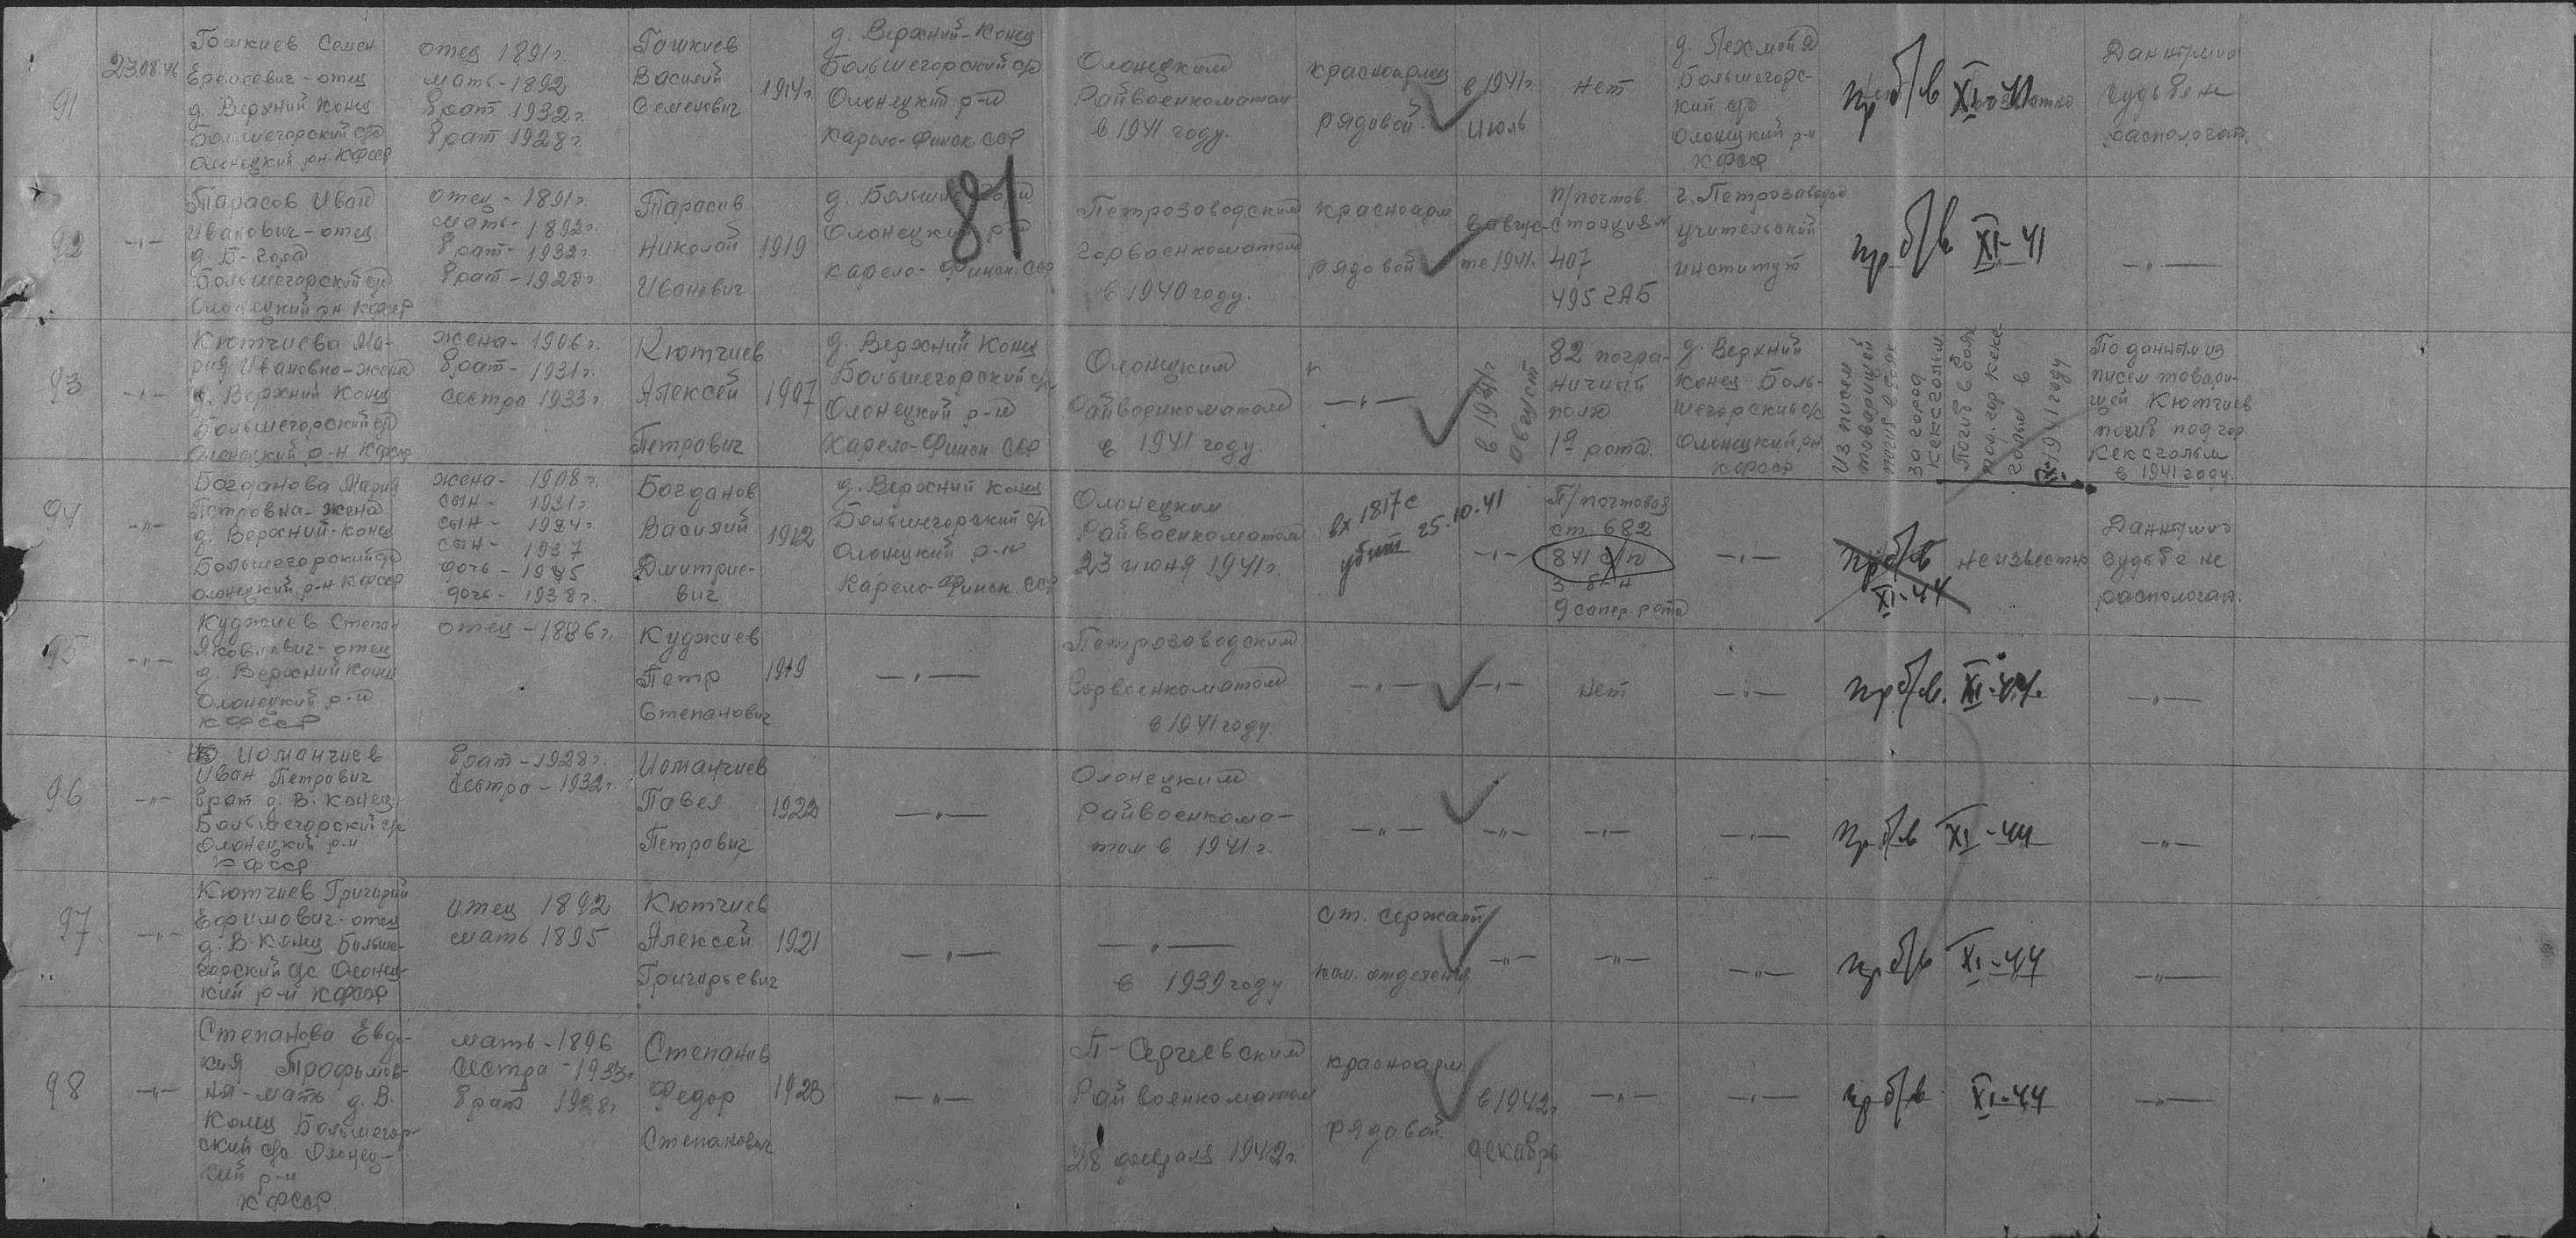 91
23.08.46
Гошкиев Семен
Еремеевич - отец
д. Верхний Конец
Большегорский с/с
Олонецкий р-н КФССР
отец 1891 г.
мать - 1892
брат 1932 г.
брат 1928 г.
Гошкиев
Василий
Семенович
1914 г.
д. Верхний-Конец
Большегорский с/с
Олонецкий р-н
Карело-Финск. ССР
Олонецким
Райвоенкоматом
в 1941 году.
красноармец
рядовой.
в 1941 г.
июль
нет
д.
Большегорс-
кий с/с
Олонецкий р-н
КФССР
пр б/в
XI-41
Данными о
судьбе не
распологает.
81
92
-"-
Тарасов Иван
Иванович - отец
д. Б-Гора
Большегорский с/с
Олонецкий р-н КФССР
отец - 1891 г.
мать - 1892 г.
брат - 1932 г.
брат - 1928 г.
Тарасов
Николай
Иванович
1919
д. Большая Гора
Олонецкий р-н
Карело-Финск. ССР
Петрозаводским
горвоенкоматом
в 1940 году.
красноарм
рядовой
в авгус-
те 1941.
п/почтов.
станция №
407
495 ГАБ
г. Петрозаводск
учительский
институт
пр б/в
XI-41
-"-
93
-"-
Кютчиева Ма-
рия Ивановна - жена
д. Верхний Конец
Большегорский с/с
Олонецкий р-н КФССР
жена - 1906 г.
брат - 1931 г.
сестра 1933 г.
Кютчиев
Алексей
Петрович
1907
д. Верхний Конец
Большегорский с/с
Олонецкий р-н
Карело-Финск. ССР
Олонецким
Райвоенкоматом
в 1941 году.
-"-
в 1941 г.
август
82 погра-
ничный
полк
1я рота.
д. Верхний
Конец Боль-
шегорский с/с
Олонецкий р-н
КФССР
Из писем
товарищей
погиб в боях
за город
Кексгольм.
Погиб в боях
под. гор Кекс
гольм в
XI-1941 году
По данным из
писем товари-
щей Кютчиев
погиб под гор
Кексгольм
в 1941 году.
94
-"-
Богданова Мария
Петровна - жена
д. Верхний-Конец
Большегорский с/с
Олонецкий р-н КФССР
жена - 1908 г.
сын - 1931 г.
сын - 1934 г.
сын - 1937
дочь - 1935
дочь - 1938 г.
Богданов
Василий
Дмитрие-
вич
1912
д. Верхний Конец
Большегорский с/с
Олонецкий р-н
Карело-Финск. ССР
Олонецким
Райвоенкоматом
23 июня 1941 г.
вх 1817с
убит 25.10.41
-"-
П/почтовая
ст. 682
841 с/п
3 б-н
9 сапер. рота
-"-
пр б/в
XI-44
неизвестно
Данными о
судьбе не
распологает.
95
-"-
Куджиев Степан
Яковлевич - отец
д. Верхний Конец
Олонецкий р-н
КФССР
отец - 1886 г.
Куджиев
Петр
Степанович
1919
-"-
Петрозаводским
Горвоенкоматом
в 1941 году.
-"-
-"-
нет
-"-
пр б/в.
-"-
96
-"-
Иоманчиев
Иван Петрович
брат д. В. Конец
Большегорский с/с
Олонецкий р-н
КФССР
брат - 1928 г.
сестра - 1932 г.
Иоманчиев
Павел
Петрович
1922
-"-
Олонецким
Райвоенкома-
том в 1941 г.
-"-
-"-
-"-
-"-
пр б/в
XI-44
-"-
97
-"-
Кютчиев Григорий
Ефимович - отец
д. В-Конец Больше-
горский с/с Олонец-
кий р-н КФССР
отец 1892
мать 1895
Кютчиев
Алексей
Григорьевич
1921
-"-
-"-
в 1939 году
ст. сержант
ком. отделения
-"-
-"-
-"-
пр б/в
XI-44
-"-
98
-"-
Степанова Евдо-
кия Трофимов-
на - мать д. В.
Конец Большегор-
ский с/с Олонец-
кий р-н
КФССР
мать - 1896
сестра - 1933 г.
брат 1928 г.
Степанов
Федор
Степанович
1923
-"-
П-Сергиевским
Райвоенкоматом
28 февраля 1942 г.
красноарм
рядовой
в 1942 г.
декабрь
-"-
-"-
пр б/в
XI-44
-"-